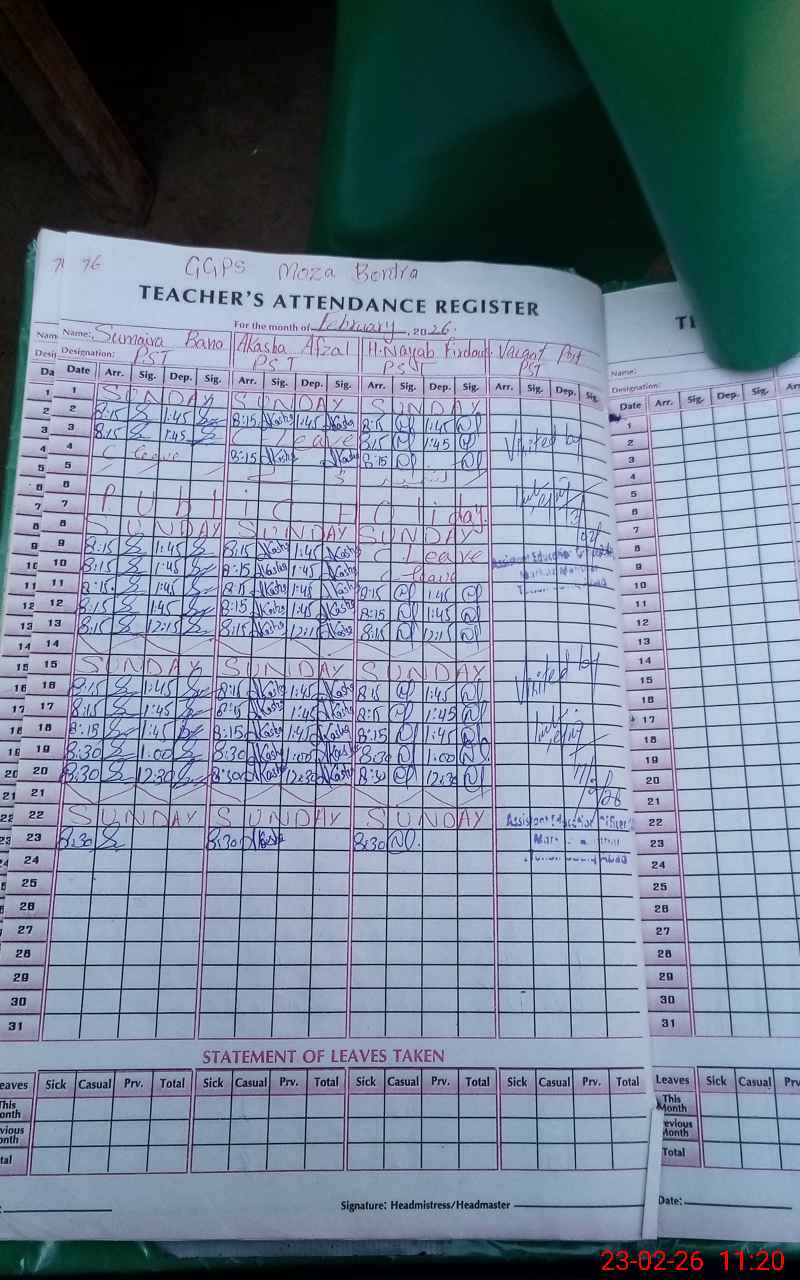 76
GGPS Moza Bondra
TEACHER'S ATTENDANCE REGISTER
For the month of February, 2026.
Name: Sumaira Bano Akasha Afzal H. Nayab Firdous Vacant Post
Designation: PST PST PST PST
Date Arr. Sig. Dep. Sig. Arr. Sig. Dep. Sig. Arr. Sig. Dep. Sig. Arr. Sig. Dep. Sig.
1 SUNDAY SUNDAY SUNDAY
2 8:15 1:45 8:15 Akasha 1:45 Akasha 8:15 1:45
3 8:15 1:45 C leave 8:15 1:45 Visited by
4 C leave 8:15 Akasha Akasha 8:15
5
6 Public Holiday
7
8 SUNDAY SUNDAY SUNDAY
9 8:15 1:45 8:15 Akasha 1:45 Akasha C Leave
10 8:15 1:45 8:15 Akasha 1:45 Akasha C leave
11 8:15 1:45 8:15 Akasha 1:45 Akasha 8:15 1:45
12 8:15 1:45 8:15 Akasha 1:45 Akasha 8:15 1:45
13 8:15 12:15 8:15 Akasha 12:15 Akasha 8:15 12:15
14
15 SUNDAY SUNDAY SUNDAY Visited by
16 8:15 1:45 8:15 Akasha 1:45 Akasha 8:15 1:45
17 8:15 1:45 8:15 Akasha 1:45 Akasha 8:15 1:45
18 8:15 1:45 8:15 Akasha 1:45 Akasha 8:15 1:45
19 8:30 1:00 8:30 Akasha 1:00 Akasha 8:30 1:00
20 8:30 12:30 8:30 Akasha 12:30 Akasha 8:30 12:30
21
22 SUNDAY SUNDAY SUNDAY Assistant Education Officer
23 8:30 8:30 Akasha 8:30
24
25
26
27
28
29
30
31
STATEMENT OF LEAVES TAKEN
Leaves Sick Casual Prv. Total Sick Casual Prv. Total Sick Casual Prv. Total Sick Casual Prv. Total
This Month
Previous Month
Total
Signature: Headmistress/Headmaster
Name:
Designation:
Date Arr. Sig. Dep. Sig.
1
2
3
4
5
6
7
8
9
10
11
12
13
14
15
16
17
18
19
20
21
22
23
24
25
26
27
28
29
30
31
Leaves Sick Casual Prv.
This Month
Previous Month
Total
Date:
23-02-26 11:20